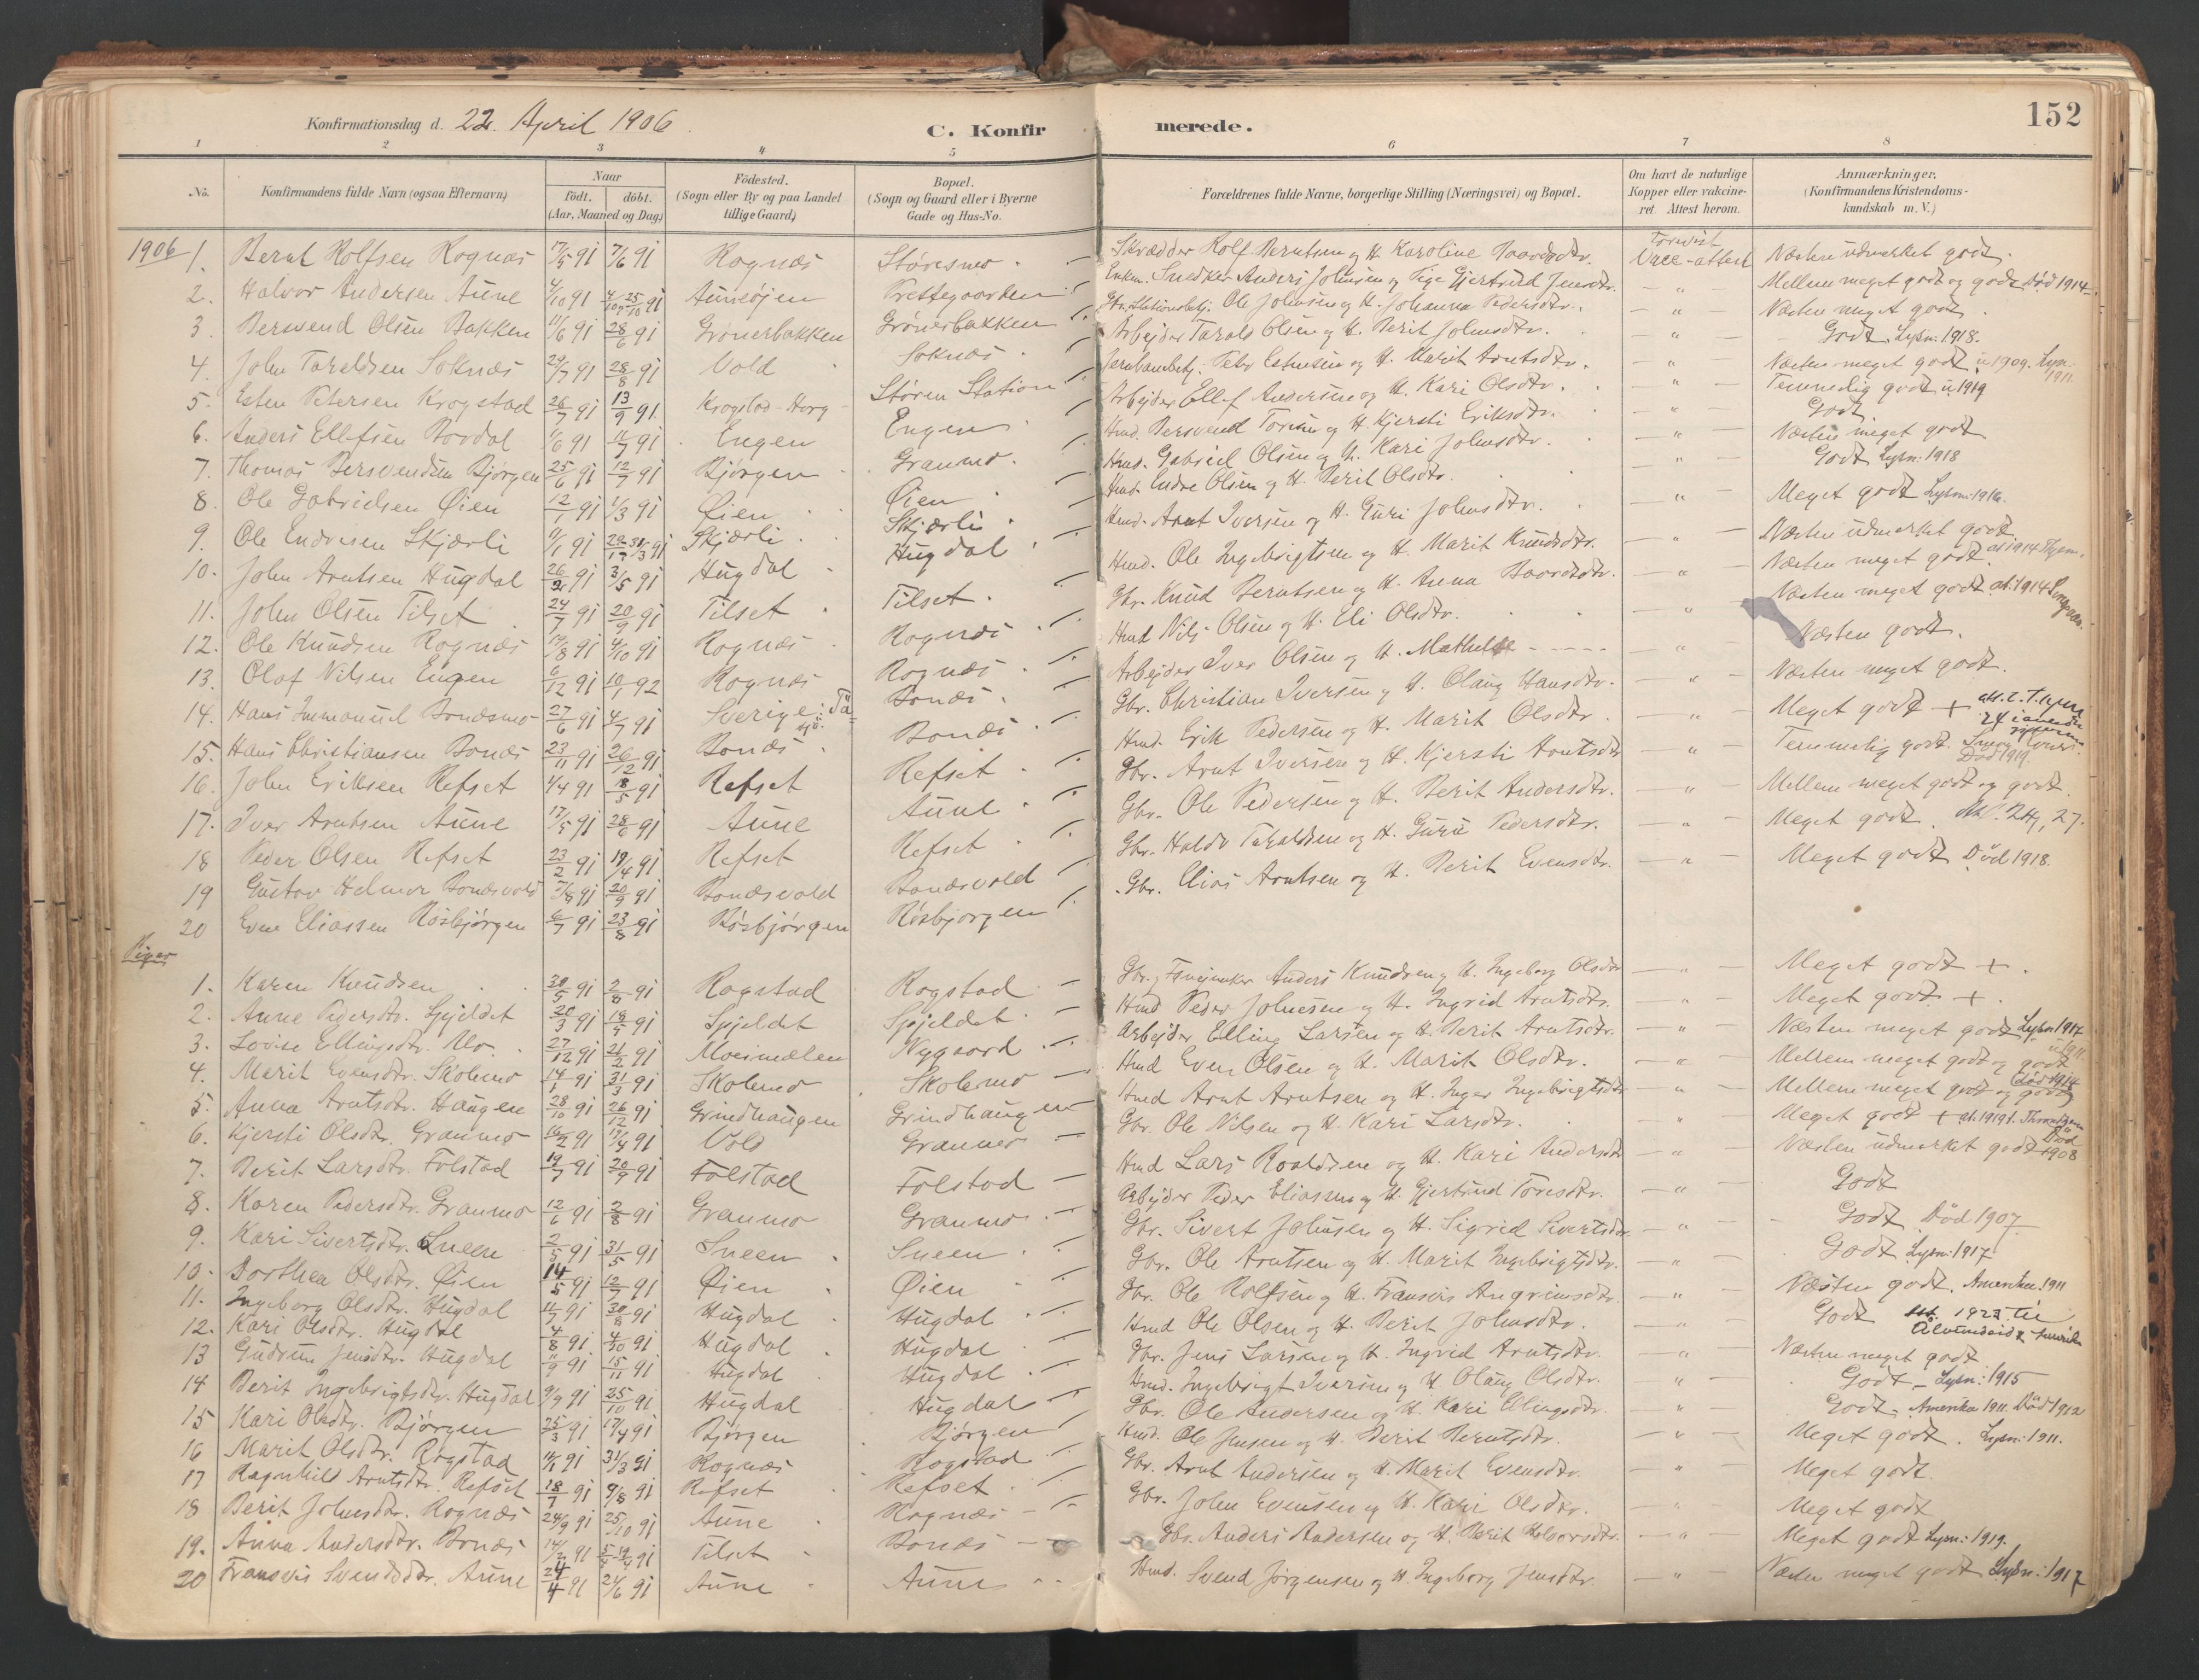 152
Konfirmationsdag d. 22. April 1906.
C. Konfirmerede.
1 2 3 4 5 6 7 8
No. Konfirmandens fulde Navn (ogsaa Efternavn) Naar födt. döbt. (Aar, Maaned og Dag.) Födested. (Sogn eller By og paa Landet tillige Gaard.) Bopæl. (Sogn og Gaard eller i Byerne Gade og Hus-No. Forældrenes fulde Navne, borgerlige Stilling (Næringsvei) og Bopæl. Om havt de naturlige Kopper eller vakcineret. Attest herom. Anmærkninger. (Konfirmandens Kristendomskundskab m. V.)
1906 1. Bernt Rolfsen Rognæs 17/5 91 7/6 91 Rognæs Støresmo Skrædder Rolf Berntsen og H. Karoline Baardsdtr. Forevist Vacc-attest Næsten udmærket godt.
2. Halvor Andersen Aune 4/10 91 Auneøjen Prestegaarden Snedker Anders Johnsen og Pige Gjertrud Jensdtr. - " - Mellem meget godt og godt Død 1914
3. Bersvend Olsen Bakken 11/6 91 28/6 91 Grönerbakken Grönerbakken Ole Johnsen og H. Johanna Pedersdtr. - " - Næsten meget godt.
4. John Taraldsen Soknæs 29/7 91 28/8 91 Vold Soknæs Arbejder Tarald Olsen og H. Berit Johnsdtr. " Godt. Lysn. 1918.
5. Esten Petersen Krogstad 26/7 91 13/9 91 Krogstad - Horg Støren Station Peter Estensen og H. Marit Arntsdtr. " Næsten meget godt. u. 1909. Lysn. 1911.
6. Anders Ellefsen Bordal 1/6 91 11/7 91 Engen Engen Arbejder Ellef Andersen og H. Kari Olsdtr. - " - Temmelig godt u. 1919
7. Thomas Bersvendsen Bjørgen 25/6 91 12/7 91 Bjørgen Granmo. Hmd. Bersvend Toresen og H. Kjersti Eriksdtr. - " - Godt
8. Ole Gabrielsen Øien 12/1 91 1/3 91 Øien Øien Hmd. Gabriel Olsen og H. Kari Johnsdtr. - " - Næsten meget godt
9. Ole Endresen Skjærli 11/1 91 Skjærli Skjærli Hmd. Endre Olsen og H. Berit Olsdtr. - " - Godt Lysn: 1918
10. John Arntsen Hugdal 26/2 91 3/5 91 Hugdal Hugdal Hmd. Arnt Iversen og H. Guri Johnsdtr. " Meget godt Lysn: 1916.
11. John Olsen Tilset 24/7 91 20/9 91 Tilset Tilset. Hmd. Ole Ingebrigtsen og H. Marit Knudsdtr. - " - Næsten udmærket godt.
12. Ole Knudsen Rognæs 17/8 91 4/10 91 Rognæs Rognæs Gbr. Knud Berntsen og H. Anna Baardsdtr. - " - Næsten meget godt. at. 1914
13. Olaf Nilsen Engen 6/12 91 10/1 92 Rognæs Rognæs Hmd Nils Olsen og H. Eli Olsdtr. " Næsten meget godt. at. 1914
14. Hans Immanuel Bonæsmo 27/6 91 4/7 91 Sverige: Bonæs. Arbejder Iver Olsen og H. Mathilde - - - - - " - Næsten godt.
15. Hans Christiansen Bonæs 23/11 91 26/12 91 Bonæs Bonæs Gbr. Christian Iversen og H. Olaug Hansdtr. - " - Næsten meget godt.
16. John Eriksen Refset 4/4 91 18/5 91 Refset Refset Hmd. Erik Pedersen og H. Marit Olsdtr - " - Meget godt +
17. Iver Arntsen Aune 17/5 91 28/6 91 Aune Aune Gbr. Arnt Iversen og H. Kjersti Arntsdtr - " - Temmelig godt. Død 1919.
18 Peder Olsen Refset 23/2 91 19/4 91 Refset Refset Gbr. Ole Pedersen og H. Berit Andersdtr. - " - Mellem meget godt og godt.
19 Gustav Helmer Bonæsvold 7/8 91 20/9 91 Bonæsvold Bonæsvold Gbr. Haldo Taraldsen og H. Guru Pedersdtr. - " - Meget godt. 24, 27.
20 Even Eliassen Rösbjørgen 6/7 91 23/8 91 Rösbjørgen Rösbjørgen Gbr. Elias Arntsen og H. Berit Evensdtr. - " - Meget godt Død 1918.
Piger
1. Karen Knudsen 30/5 91 2/8 91 Rogstad Rogstad Gbr. Anders Knudsen og H. Ingeborg Olsdtr - " - Meget godt +.
2. Anne Pedersdtr. Spjeldet 20/3 91 18/5 91 Spjeldet Spjeldet. Hmd Peder Johnesen og H. Ingrid Arntsdtr. - " - Meget godt +.
3. Lovise Ellingsdtr. Mo. 27/12 91 21/2 91 Moeimælen Nygaard Arbejder Elling Larsen og H. Berit Arntsdtr. - " - Næsten meget godt Lysn 1917
4. Marit Evensdtr. Skolmo 14/1 91 31/3 91 Skolmo Skolmo Hmd Even Olsen og H. Marit Olsdtr. - " Mellem meget godt og godt
5. Anna Arntsdtr. Haugen 28/10 91 26/12 91 Grindhaugen Grindhaugen Hmd Arnt Arntsen og H. Inger Ingebrigtsdtr - " - Mellem meget godt og godt Død 1914
6. Kjersti Olsdtr. Granmo 16/2 91 19/4 91 Vold Granmo Gbr. Ole Nilsen og H. Kari Larsdtr. " Meget godt + at. 1919 t.
7. Berit Larsdtr. Folstad 19/7 91 20/9 91 Folstad Folstad Hmd Lars Roaldsen og H. Kari Andersdtr - " - Næsten udmærket godt Død 1908
8. Karen Pedersdtr. Granmo 12/6 91 2/8 91 Granmo Granmo Arbejder Peder Eliassen og H. Gjertrud Toresdtr. - " - Godt
9. Kari Sivertsdtr. Sneen 2/5 91 31/5 91 Sneen Sneen Gbr. Sivert Johnsen og H. Sigrid Sivertsdtr - " - Godt Død 1907
10. Dorthea Olsdtr. Øien 14/5 91 12/7 91 Øien Øien Gbr. Ole Arntsen og H. Marit Ingebrigtsdtr. - " Godt Lysn: 1917
11. Ingeborg Olsdtr. Hugdal 11/7 91 30/8 91 Hugdal Hugdal Gbr. Ole Rolfsen og H. Fransis Angrimsdtr. - " - Næsten godt. Amerika 1911
12. Kari Olsdtr. Hugdal 4/8 91 4/10 91 Hugdal Hugdal Hmd Ole Olsen og H. Berit Johnsdtr. - " - Godt att. 1923 til
13 Gudrun Jensdtr. Hugdal 11/9 91 15/11 91 Hugdal Hugdal Gbr. Jens Larsen og H. Ingrid Arntsdtr - " - Næsten meget godt
14 Berit Ingebrigtsdtr. Hugdal 9/9 91 25/10 91 Hugdal Hugdal Hmd. Ingebrigt Iversen og H. Olaug Olsdtr. - " - Godt - Lysn: 1915
15 Kari Olsdtr. Bjørgen 25/3 91 17/4 91 Bjørgen Bjørgen Gbr. Ole Andersen og H. Kari Ellingsdtr. - " - Godt - Amerika 1911. Død 1912
16 Marit Olsdtr. Rogstad 14/1 91 31/3 91 Rognæs Rogstad Hmd. Ole Jensen og H. Berit Berntsdtr. - " - Meget godt. Lysn: 1911.
17 Ragnhild Arntsdtr. Refset 18/7 91 9/8 91 Refset Refset Gbr. Arnt Andersen og H. Marit Evensdtr. " Meget godt.
18 Berit Johnsdtr. Rognæs 24/9 91 25/10 91 Aune Rognæs Gbr. John Evensen og H. Kari Olsdtr. - " - Meget godt
19. Anna Andersdtr. Bonæs 14/2 91 Tilset Bonæs Gbr. Anders Andersen og H. Berit Halvorsdtr. - " - Meget godt Lysn: 1919.
20 Fransis Svendsdtr. Aune 24/4 91 21/6 91 Aune Aune Hmd. Svend Jørgensen og H. Ingeborg Jensdtr - " - Næsten meget godt Lysn: 1917